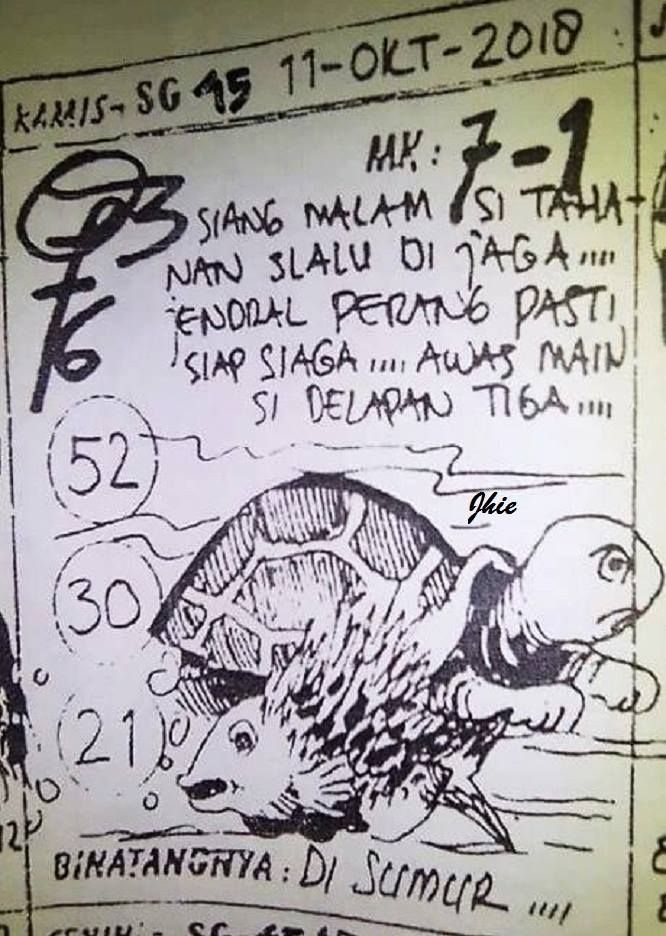 KAMIS- SG 45 11-OKT-2018
MK: 7-1
03
76
SIANG MALAM SI TAHA-
NAN SLALU DI JAGA.....
JENDRAL PERANG PASTI
SIAP SIAGA..... AWAS MAIN
SI DELAPAN TIGA.....
52
Jhie
30
21
BINATANGNYA: DI SUMUR ....